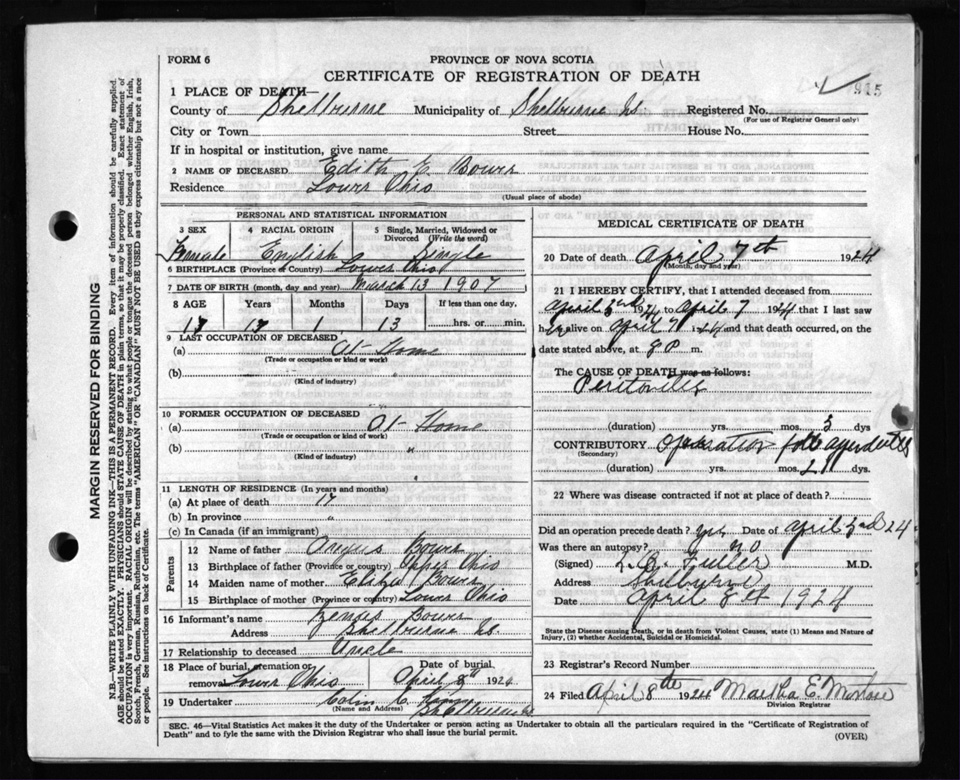 FORM 6
PROVINCE OF NOVA SCOTIA
CERTIFICATE OF REGISTRATION OF DEATH
915
1 PLACE OF DEATH—
County of Shelburne Municipality of Shelburne Registered No.
(For use of Registrar General only)
City or Town Street House No.
If in hospital or institution, give name
2 NAME OF DECEASED Edith E. Bower
Residence Lower Ohio
(Usual place of abode)
PERSONAL AND STATISTICAL INFORMATION
3 SEX 4 RACIAL ORIGIN 5 Single, Married, Widowed or Divorced (Write the word)
Female English Single
6 BIRTHPLACE (Province or Country) Lower Ohio
7 DATE OF BIRTH (month, day and year) March 13 1907
8 AGE Years Months Days If less than one day,
17 17 1 13 hrs. or min.
9 LAST OCCUPATION OF DECEASED
(a) At Home
(Trade or occupation or kind or work)
(b) "
(Kind of industry)
10 FORMER OCCUPATION OF DECEASED
(a) At Home
(Trade or occupation or kind of work)
(b) "
(Kind of industry)
11 LENGTH OF RESIDENCE (In years and months)
(a) At place of death 17
(b) In province "
(c) In Canada (if an immigrant)
Parents
12 Name of father Angus Bower
13 Birthplace of father (Province or country) Upper Ohio
14 Maiden name of mother Eliza Bower
15 Birthplace of mother (Province or country) Lower Ohio
16 Informant's name Bower
Address Shelburne
17 Relationship to deceased Uncle
18 Place of burial, cremation or removal Lower Ohio Date of burial April 8th 192
19 Undertaker Colin C.
(Name and Address) Shelburne
MEDICAL CERTIFICATE OF DEATH
20 Date of death April 7th 1924
(Month, day and year)
21 I HEREBY CERTIFY, that I attended deceased from
April 3rd 1924 to April 7 1924 that I last saw
her alive on April 7 1924 and that death occurred, on
date stated above, at 8 P m.
The CAUSE OF DEATH was as follows:
Peritonitis
(duration) yrs. mos. 3 dys.
CONTRIBUTORY Operation for appendicitis
(Secondary)
(duration) yrs. mos. 4 dys.
22 Where was disease contracted if not at place of death?
Did an operation precede death? yes Date of April 3rd 24
Was there an autopsy? no
(Signed) Fuller M.D.
Address Shelburne
Date April 8th 1924
State the Disease causing Death, or in death from Violent Causes, state (1) Means and Nature of
Injury, (2) whether Accidental, Suicidal or Homicidal.
23 Registrar's Record Number
24 Filed April 8th 1924 Martha E.
Division Registrar
SEC. 46—Vital Statistics Act makes it the duty of the Undertaker or person acting as Undertaker to obtain all the particulars required in the "Certificate of Registration of
Death" and to fyle the same with the Division Registrar who shall issue the burial permit.
(OVER)
MARGIN RESERVED FOR BINDING
N.B.—WRITE PLAINLY WITH UNFADING INK—THIS IS A PERMANENT RECORD. Every item of information should be carefully supplied.
AGE should be stated EXACTLY. PHYSICIANS should STATE CAUSE OF DEATH in plain terms, so that it may be properly classified. Exact statement of
OCCUPATION is very important. RACIAL ORIGIN will be described by stating to what people or tongue the deceased person belonged whether English, Irish,
Scotch, French, German, Russian, Ruthenian, etc. The terms "AMERICAN" or "CANADIAN" MUST NOT BE USED as they express citizenship but not a race
or people. See instructions on back of Certificate.